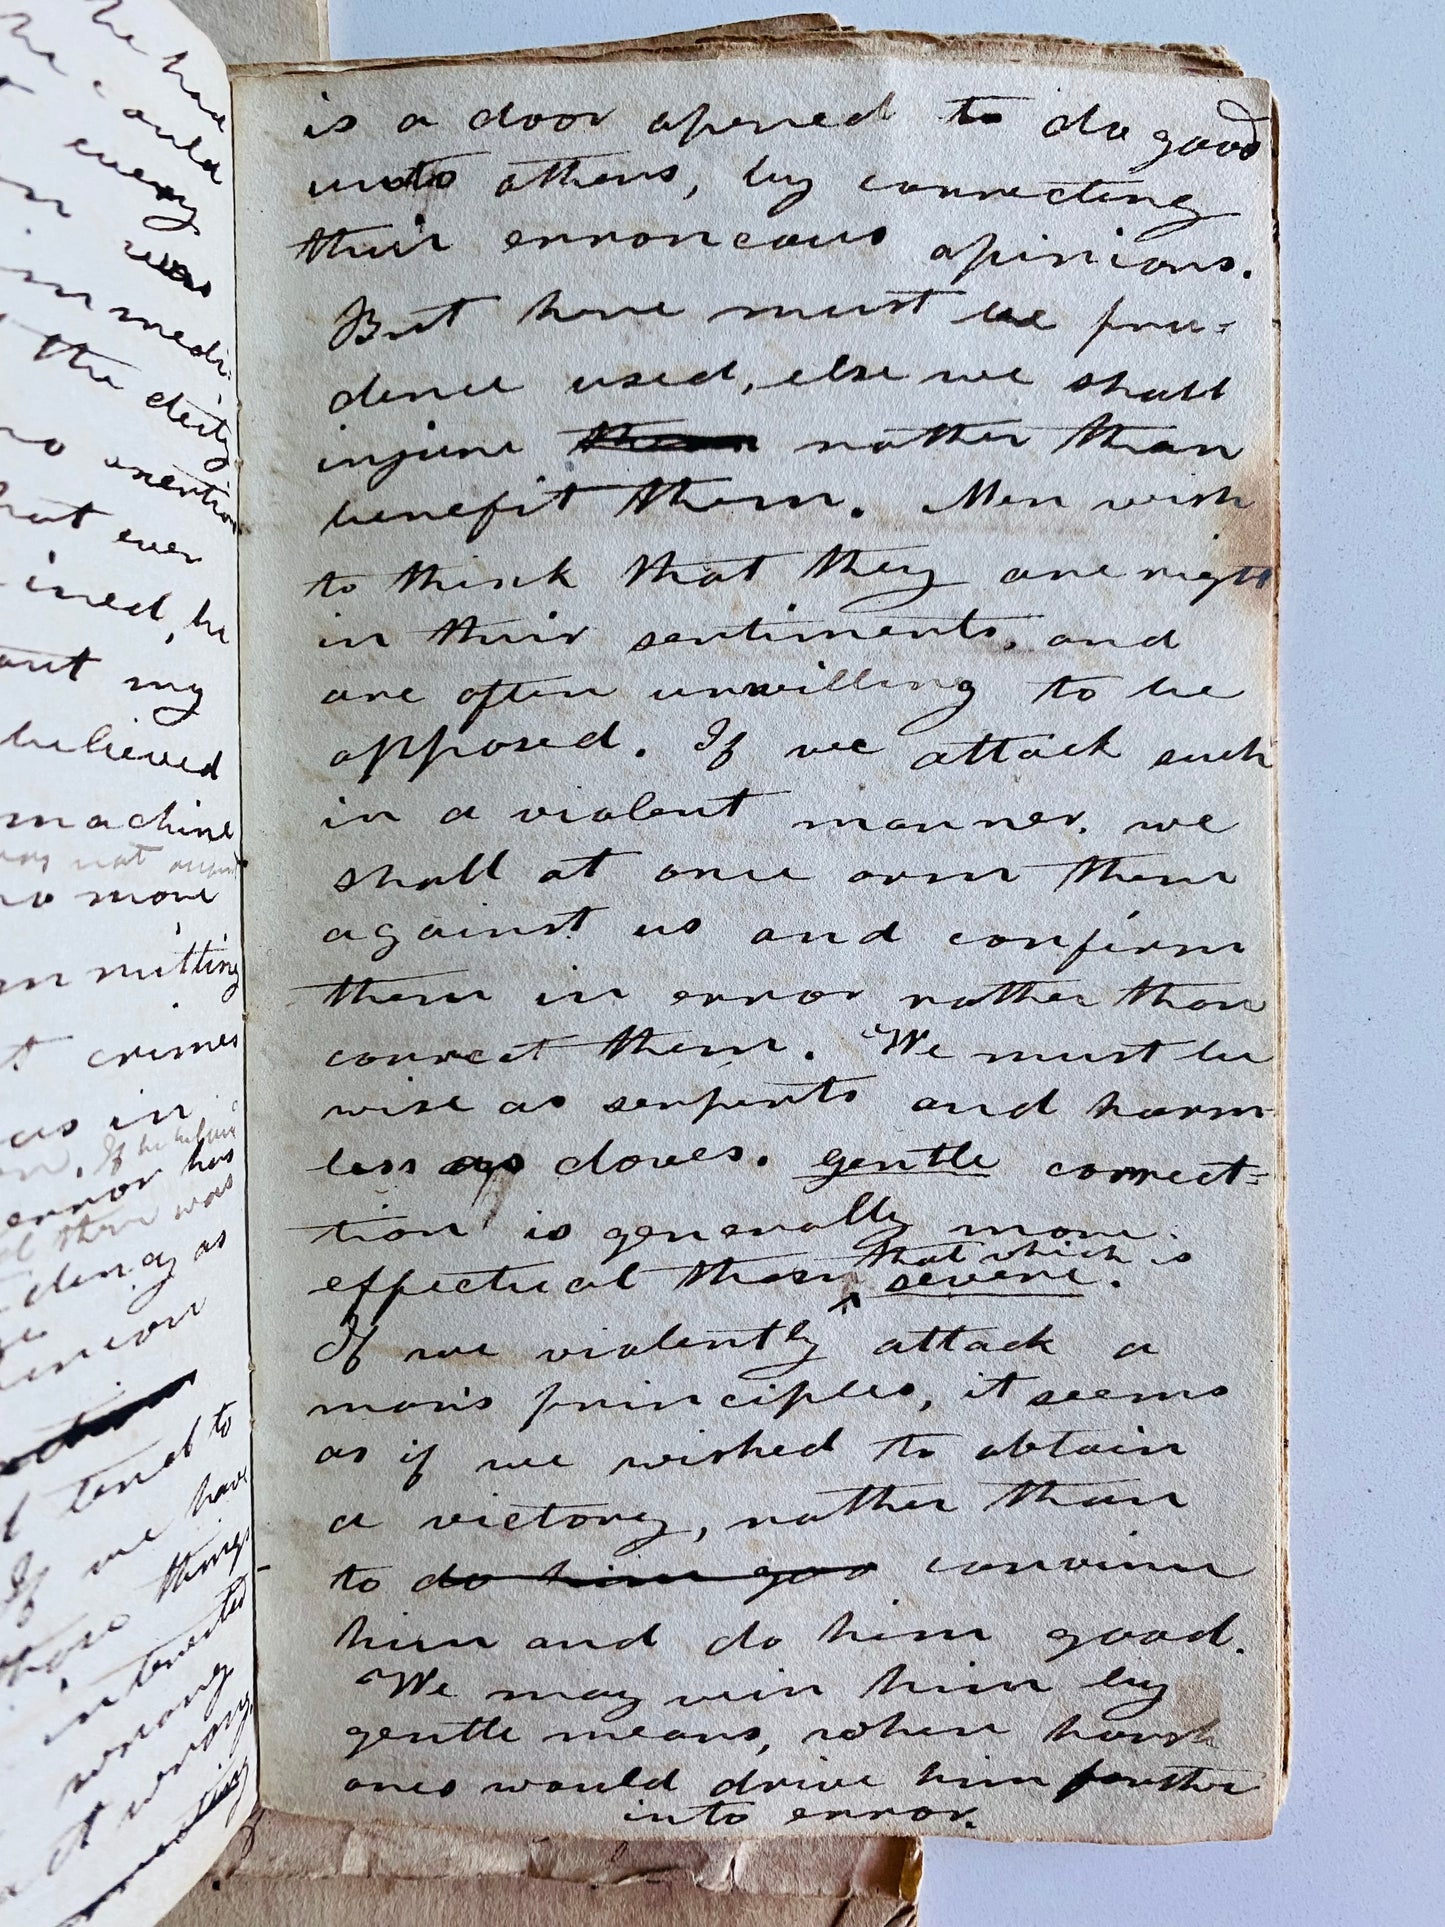 he had
he could
every
was
immedi-
the deity
no exertion
hat ever
ined, he
out my
believed
machine
no more
mmitting
crimes
as in
If he believe
error has
there was
dency as
tend to
If we have
those things
interested
wrong
wrong,
is a door opened to do good
unto others, by correcting
their erroneous opinions.
But here must be pru=
dence used, else we shall
injure them rather than
benefit them. Men wish
to think that they are right
in their sentiments, and
are often unwilling to be
opposed. If we attack such
in a violent manner, we
shall at once arm them
against us and confirm
them in error rather than
correct them. We must be
wise as serpents and harm-
less as doves. gentle correct=
tion is generally more
that which is
effectual than ^ severe.
If we violently attack a
man's principles, it seems
as if we wished to obtain
a victory, rather than
to do him goo convince
him and do him good.
We may win him by
gentle means, when harsh
ones would drive him further
into error.